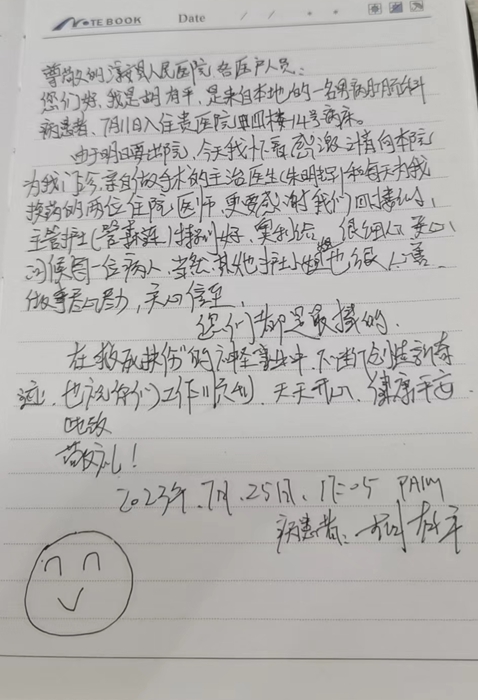 NOTE BOOK Date / /
尊敬的 县人民医院各医护人员:
您们好,我是胡 平,是来自本地的一名男病肛肠科
病患者,7月11日入住贵医院 四楼14号病床。
由于明日要出院,今天我怀着感激之情向本院
为我门诊、亲自做手术的主治医生(朱明 )和每天为我
换药的两位住院医师,更要感谢我们四楼的
主管护士(管森莲)特别好,奥利给,很细心、关心、
问候同一位病人,当然其他护士小姐也很人善
做事 心 ,关心 至,
您们都是最棒的。
在救死扶伤的神圣事业中不断创造新奇
迹,也祝你们工作顺利、天天开心、健康平安
此致
敬礼!
2023年.7月.25日.17:05
病患者:胡 平